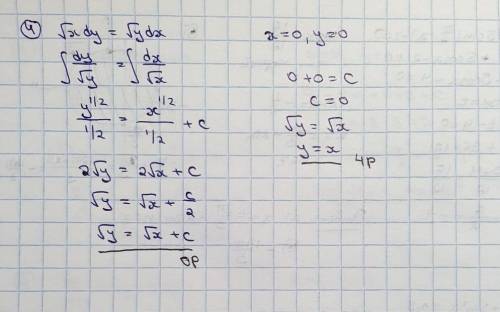 4
√x dy = √y dx
∫ dy/√y = ∫ dx/√x
y^1/2 / 1/2 = x^1/2 / 1/2 + c
2√y = 2√x + c
√y = √x + c/2
√y = √x + c
OP
x=0, y=0
0+0=C
c=0
√y = √x
y=x
ЧР